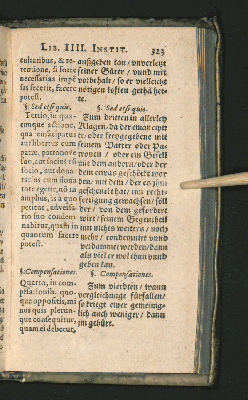 LIB. IIII. INSTIT. 323
culitatibus, & re-
tentione, si forte
necessarias impē-
sas fecerit, facere
potest.
§. Sed etsi quis.
Tertio, in qua-
cumque actione
qua emancipatus
aut libertus cum
patre, patronove
suo, aut socius cū
socio, aut dona-
tus cum donatore
agit, in
is a quo
petitur, adversa-
rio suo condem-
nabitur, quantum in
quantum facere
potest.
§. Compensationes.
Quarto, in com-
pēsationib. quo-
que oppositis, mi-
nus quis plerun-
que consequitur,
quam ei debetur,
außgeben kan / unverletzt
seiner Güter / vnd mit
vorbehalt / so er vielleicht
nötigen kosten gethā het-
te.
§. Sed etsi quis.
Zum dritten in allerley
Klagen / da der emancipiert
oder freygegebene mit
seinem Vatter oder Pa-
tronen / oder ein Gesell
mit dem andern / oder der
dem etwas geschēckt wor-
den / mit dem / der es jm
geschenckt hat / im recht-
fertigung gewachsen / soll
der / von dem gefordert
wirt / seinem Gegentheil
in nichts weiters / noch
mehr / condemnirt vnd
verdammet werden / dann
als viel er wol thun vnd
geben kan.
§. Compensationes.
Zum vierdten / wann
vergleichunge fürfallen /
so kriegt einer gemeinig-
lich auch weniger / dann
jm gebürt.